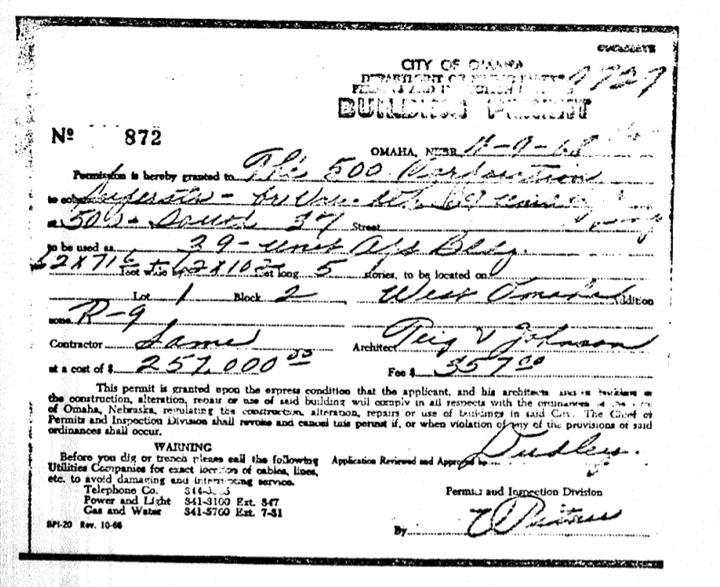 CITY OF OMAHA
BUILDING PERMIT
9727
Nº 872
OMAHA, NEBR. 11-9-68
Permission is hereby granted to The 500 Corporation
to
at 500 - South 37 Street
to be used as 39-unit Bldg.
feet wide by feet long 5 stories, to be located on
Lot 1 Block 2 West Omaha Addition
zone R-9
Contractor Same Architect Johnson
at a cost of $ 257,000 00 Fee $ 357 00
This permit is granted upon the express condition that the applicant, and his architects and or builders in
the construction, alteration, repair or use of said building will comply in all respects with the ordinances of the City
of Omaha, Nebraska, regulating the construction, alteration, repairs or use of buildings in said City. The Chief of
Permits and Inspection Division shall revoke and cancel this permit if, or when violation of any of the provisions of said
ordinances shall occur.
WARNING
Before you dig or trench please call the following
Utilities Companies for exact location of cables, lines,
etc. to avoid damaging and interrupting service.
Telephone Co.
Power and Light 341-3100 Ext. 847
Gas and Water 341-5700 Ext. 7-31
BPI-20 Rev. 10-66
Application Reviewed and Approved by Dudley
Permits and Inspection Division
By